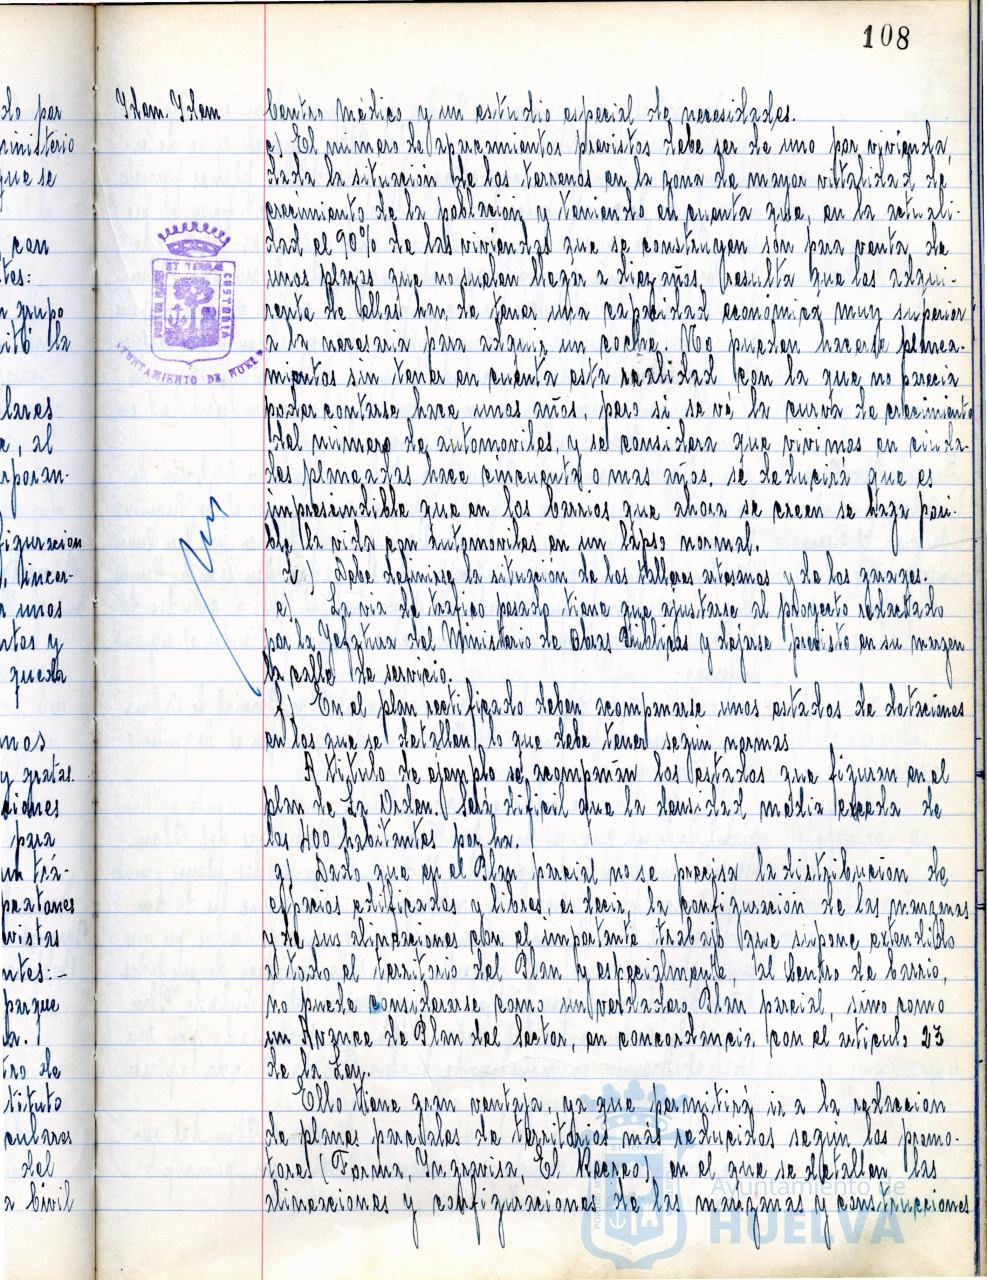 108
Idem. Idem
Centro Médico y un estudio especial de necesidades.
c) El número de aparcamientos previstos debe ser de uno por vivienda,
dada la situación de los terrenos en la zona de mayor vitalidad de
crecimiento de la población y teniendo en cuenta que, en la actuali-
dad el 90% de las viviendas que se construyen son para venta de
unos plazos que no suelen llegar a diez años, resulta que los adqui-
rente de ellas han de tener una capacidad económica muy superior
a la necesaria para adquirir un coche. No pueden hacerse planea-
mientos sin tener en cuenta esta realidad con la que no parecía
poder contarse hace unos años, pero si se vé la curva de crecimiento
del número de automoviles, y se considera que vivimos en ciuda-
des planeadas hace cincuenta o mas años, se deducirá que es
imprescindible que en los barrios que ahora se creen se haga posi-
ble la vida con automoviles en un lapso normal.
d) Debe definirse la situación de los talleres artesanos y de los garages.
e) La via de tráfico pesado tiene que ajustarse al proyecto redactado
por la Jefatura del Ministerio de Obras Públicas y dejarse previsto en su margen
la calle de servicio.
f) En el plan rectificado deben acompañarse unos estados de dotaciones
en los que se detallen lo que debe tener según normas
A titulo de ejemplo se acompañan los estados que figuran en el
plan de La Orden. Será dificil que la densidad media exceda de
los 400 habitantes por ha.
g) Dado que en el Plan parcial no se precisa la distribución de
espacios edificados y libres, es decir, la configuración de las manzanas
y de sus alineaciones con el importante trabajo que supone extendido
a todo el territorio del Plan y especialmente al Centro de barrio,
no puede considerarse como un verdadero Plan parcial, sino como
un Avance de Plan del Sector, en concordancia con el articulo 23
de la Ley.
Ello tiene gran ventaja, ya que permitirá ir a la redacción
de planes parciales de territorios más reducidos según los promo-
tores (Forma, Ingravisa, El Recreo) en el que se detallen las
alineaciones y configuraciones de las manzanas y construcciones
do por
ministerio
que se
con
tes:
n grupo
itó la
lares
e, al
rporan-
figuracion
unos
ntos y
queda
mos
y gratas.
ciones
para
un trá-
peatones
vistas
ntes:-
parque
tro de
tituto
culares
del
a Civil
CUSTODIA
AYUNTAMIENTO DE HUELVA
Ayuntamiento de
HUELVA